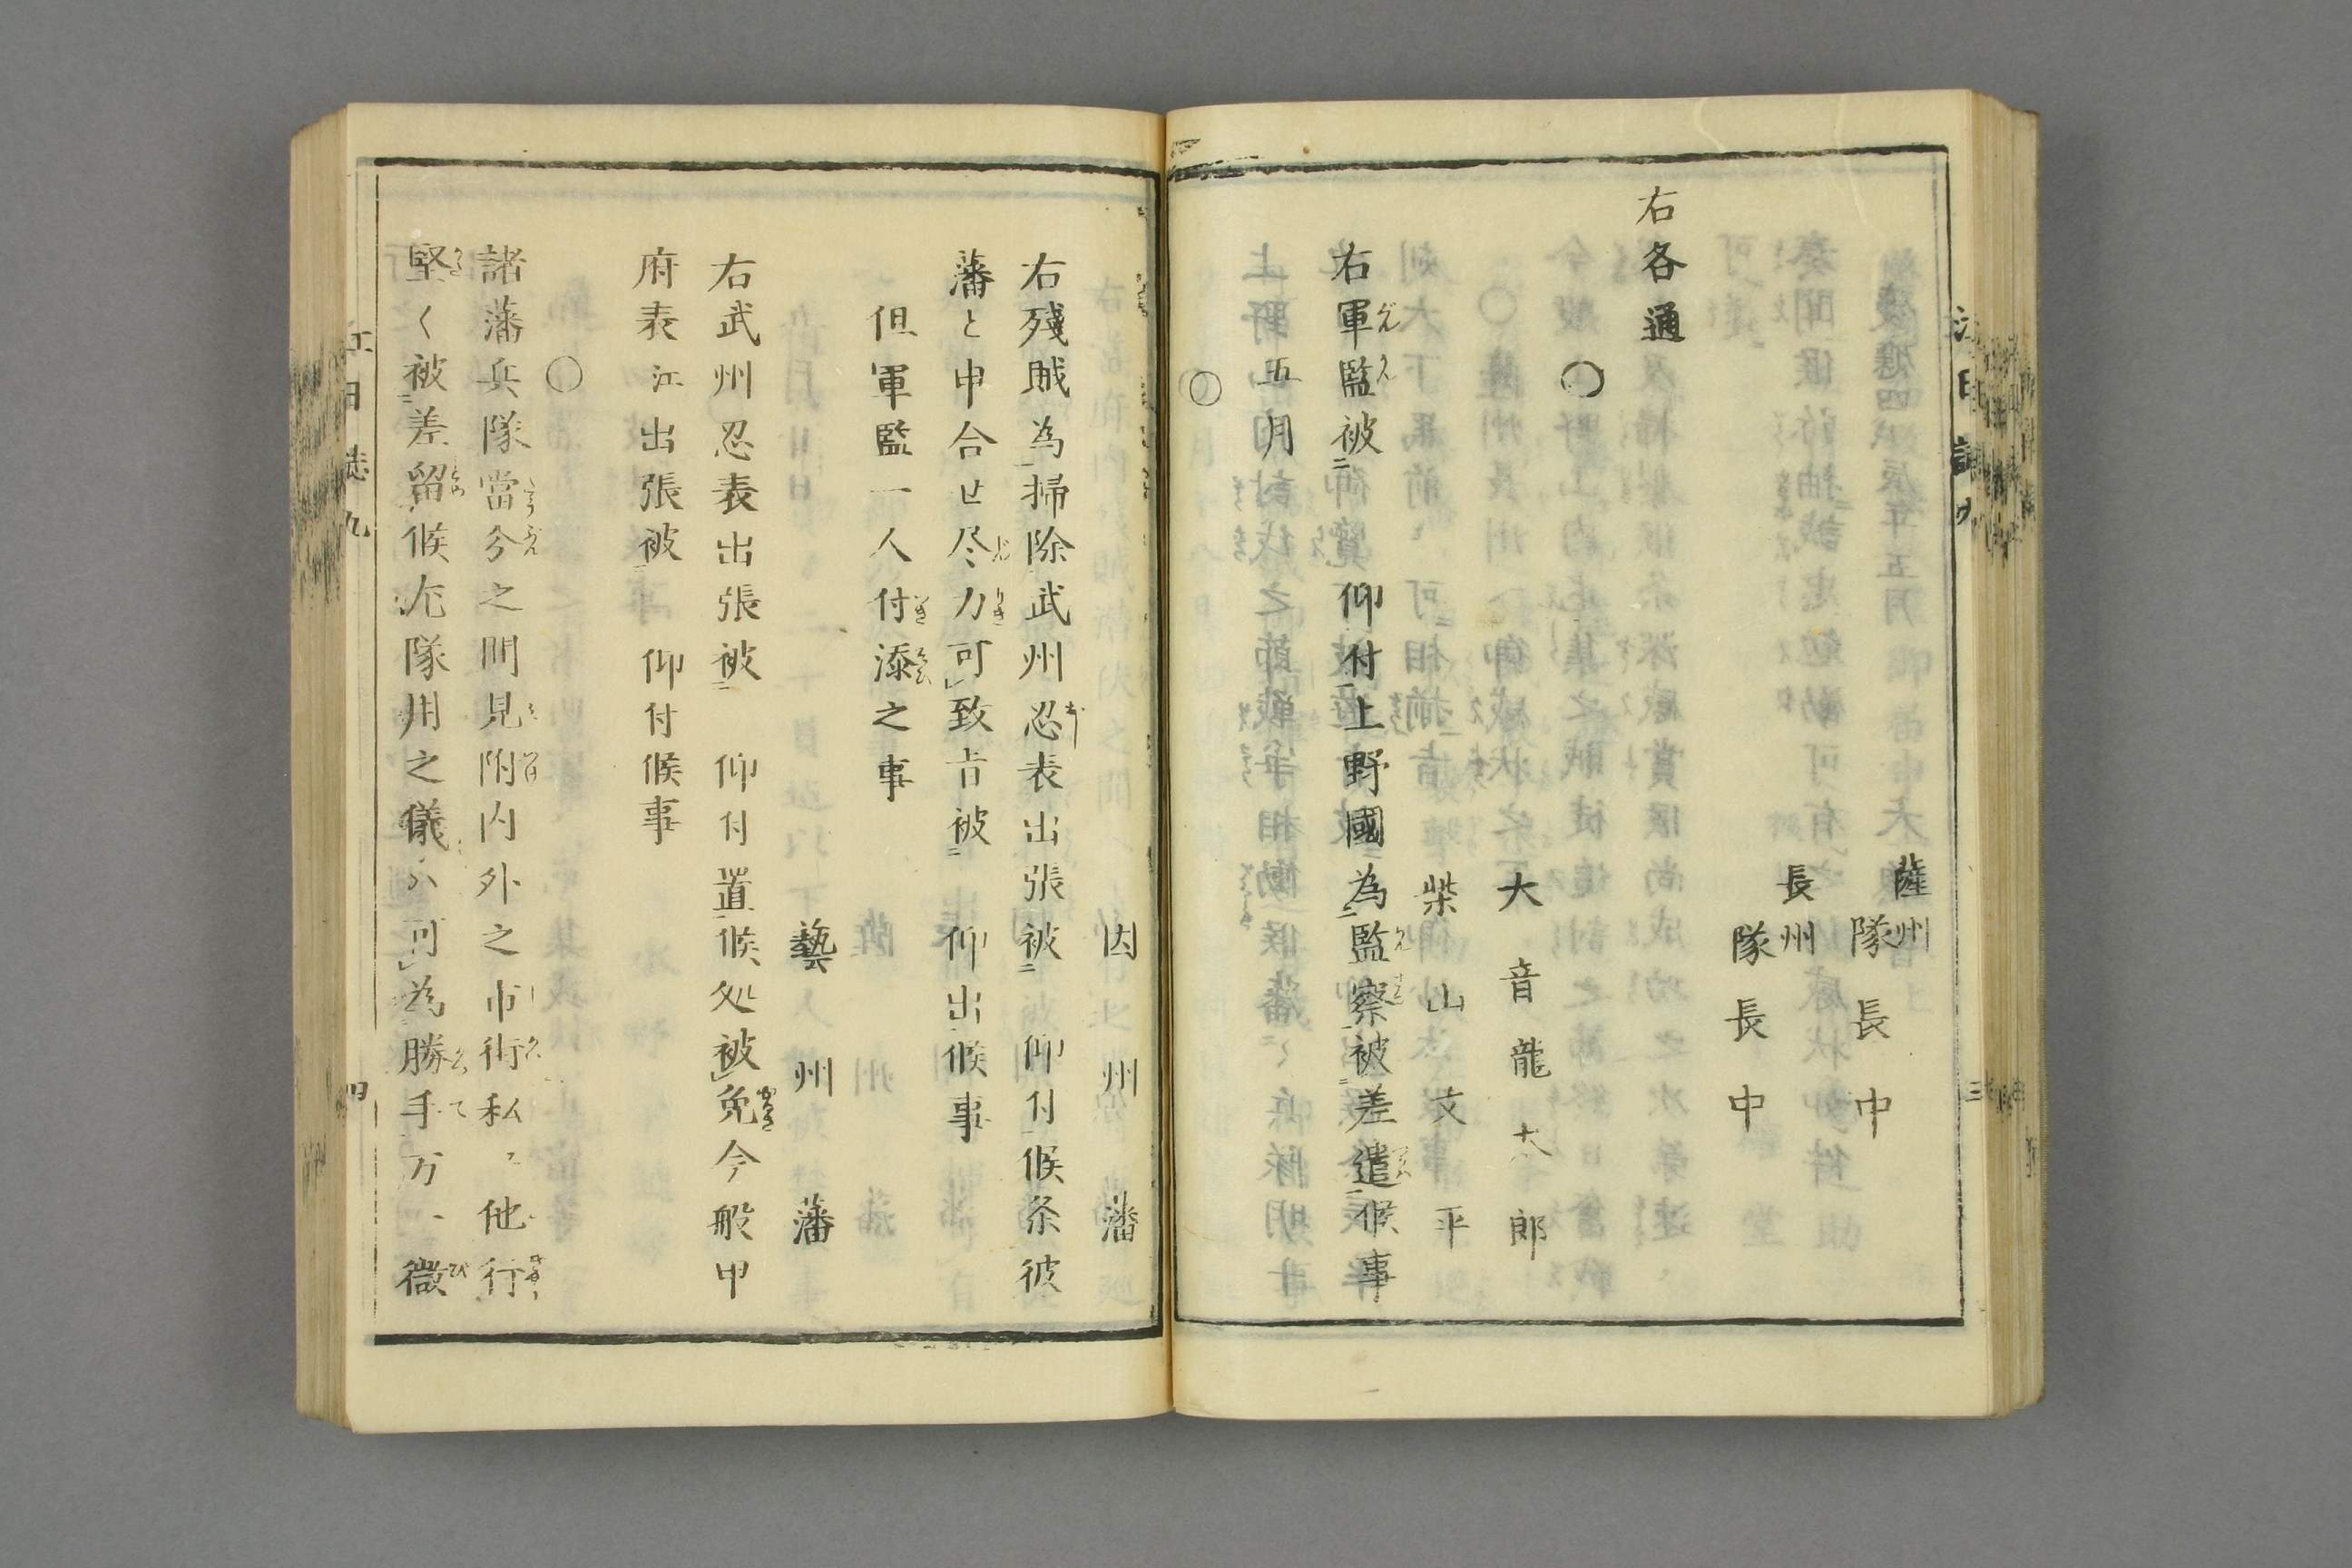 薩州
隊長中
長州
隊長中
右各通
〇
大音龍太郎
柴山文平
右軍監被 仰付上野國為監察被差遣候事
五月
〇
因州藩
右殘賊為掃除武州忍表出張被 仰付候条彼
藩と申合せ尽力可致旨被 仰出候事
但軍監一人付添之事
藝州藩
右武州忍表出張被 仰付置候処被免今般甲
府表江出張被 仰付候事
〇
諸藩兵隊當今之間見附内外之市街私ニ他行
堅く被差留候尤隊用之儀ハ可為勝手万一微
江日誌九
四